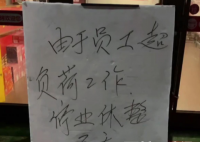 由于员工超
负荷工作，
停业休整